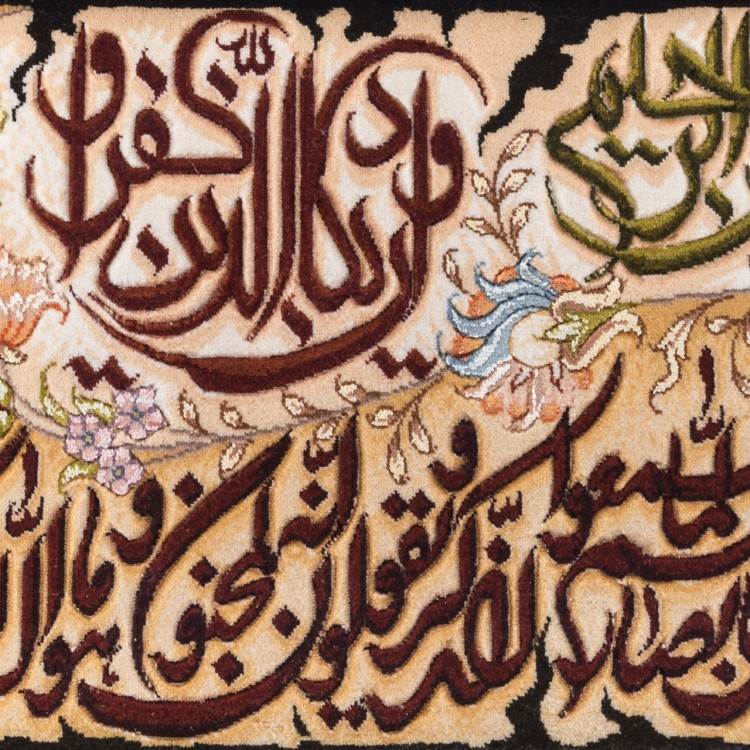 الرحیم
وان یکاد الذین کفروا
بابصارهم لما سمعوا الذکر و یقولون انه لمجنون و ما هو الا